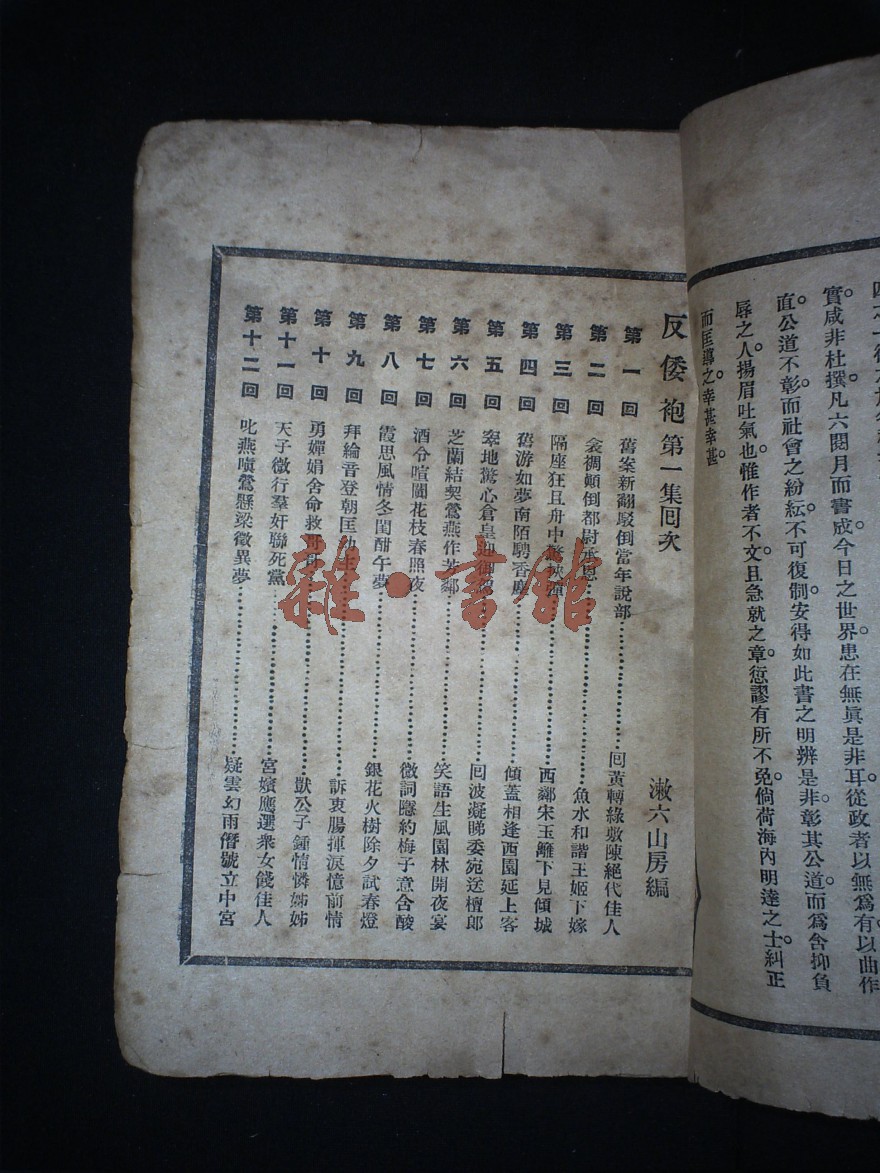 實咸非杜撰。凡六閱月而書成。今日之世界患在無眞是非耳。從政者以無爲有以曲作
直。公道不彰。而社會之紛紜。不可復制。安得如此書之明辨是非。彰其公道。而爲含抑負
辱之人揚眉吐氣也。惟作者不文。且急就之章。愆謬有所不免。倘荷海內明達之士糾正
而匡之。幸甚幸甚。
反倭袍第一集回次
漱六山房編
第一回 舊案新翻駁倒當年說部 回黃轉綠敷陳絕代佳人
第二回 衾裯顛倒都尉承恩 魚水和諧王姬下嫁
第三回 隔座狂且舟中 西鄰宋玉牆下見傾城
第四回 舊游如夢南陌騁香塵 傾蓋相逢西園延上客
第五回 牽地驚心倉皇 回波凝睇委宛送檀郎
第六回 芝蘭結契鶯燕作芳鄰 笑語生風園林開夜宴
第七回 酒令喧闐花枝春照夜 微詞隱約梅子意含酸
第八回 霞思風情冬閨酣午夢 銀花火樹除夕試春燈
第九回 拜綸音登朝匡幼主 訴衷腸揮淚憶前情
第十回 勇嬋娟舍命救哥哥 獃公子鍾情憐姊姊
第十一回 天子微行羣奸聯死黨 宮嬪應選衆女餞佳人
第十二回 叱燕嗔鶯懸梁徵異夢 疑雲幻雨僭號立中宮
雜·書館